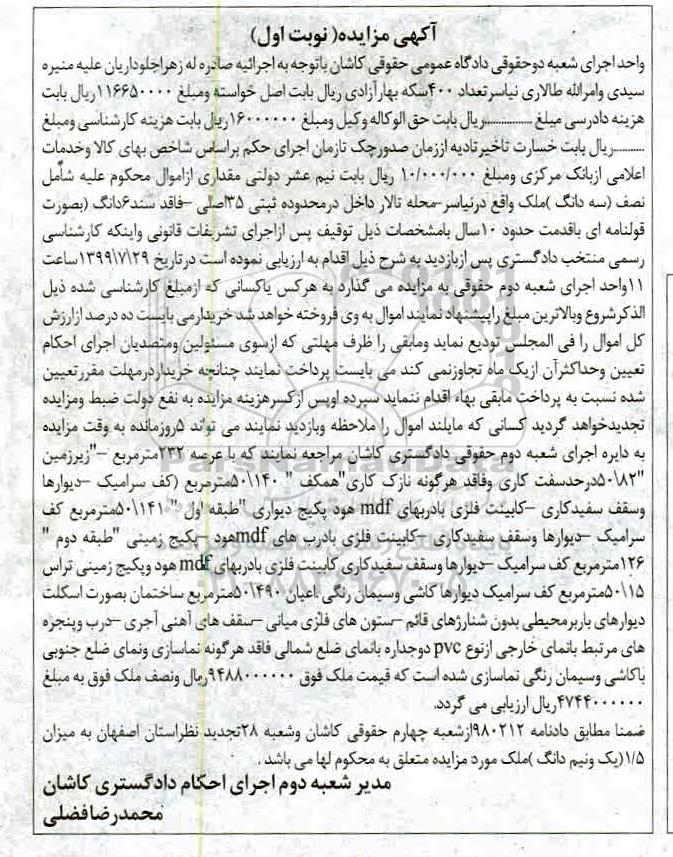 آگهی مزایده( نوبت اول)
واحد اجرای شعبه دوحقوقی دادگاه عمومی حقوقی کاشان باتوجه به اجرائیه صادره له زهراجلوداریان علیه منیره
سیدی وامرالله طالاری نیاسرتعداد ۴۰۰سکه بهارآزادی ریال بابت اصل خواسته ومبلغ ۱۱۶۶۵۰۰۰۰ریال بابت
هزینه دادرسی مبلغ ............ریال بابت حق الوکاله وکیل ومبلغ ۱۶۰۰۰۰۰۰ریال بابت هزینه کارشناسی ومبلغ
........ریال بابت خسارت تاخیرتادیه اززمان صدورچک تازمان اجرای حکم براساس شاخص بهای کالا وخدمات
اعلامی ازبانک مرکزی ومبلغ ۱۰/۰۰۰/۰۰۰ ریال بابت نیم عشر دولتی مقداری ازاموال محکوم علیه شامل
نصف (سه دانگ )ملک واقع درنیاسر-محله تالار داخل درمحدوده ثبتی ۳۵اصلی –فاقد سند۶دانگ (بصورت
قولنامه ای باقدمت حدود ۱۰سال بامشخصات ذیل توقیف پس ازاجرای تشریفات قانونی واینکه کارشناسی
رسمی منتخب دادگستری پس ازبازدید به شرح ذیل اقدام به ارزیابی نموده است درتاریخ ۱۳۹۹\۷\۲۹ساعت
۱۱واحد اجرای شعبه دوم حقوقی به مزایده می گذارد به هرکس یاکسانی که ازمبلغ کارشناسی شده ذیل
الذکرشروع وبالاترین مبلغ راپیشنهاد نمایند اموال به وی فروخته خواهد شد خریدارمی بایست ده درصد ازارزش
کل اموال را فی المجلس تودیع نماید ومابقی را ظرف مهلتی که ازسوی مسئولین ومتصدیان اجرای احکام
تعیین وحداکثرآن ازیک ماه تجاوزنمی کند می بایست پرداخت نمایند چنانچه خریداردرمهلت مقررتعیین
شده نسبت به پرداخت مابقی بهاء اقدام ننماید سپرده اوپس ازکسرهزینه مزایده به نفع دولت ضبط ومزایده
تجدیدخواهد گردید کسانی که مایلند اموال را ملاحظه وبازدید نمایند می تواند ۵روزمانده به وقت مزایده
به دایره اجرای شعبه دوم حقوقی دادگستری کاشان مراجعه نمایند که با عرصه ۲۳۲مترمربع –"زیرزمین
"۵۰\۸۲درحدسفت کاری وفاقد هرگونه نازک کاری"همکف " ۵۰\۱۴۰مترمربع (کف سرامیک –دیوارها
وسقف سفیدکاری –کابینت فلزی بادربهای mdf هود پکیج دیواری "طبقه اول " ۵۰\۱۴۱مترمربع کف
سرامیک –دیوارها وسقف سفیدکاری –کابینت فلزی بادرب های mdfهود –پکیج زمینی "طبقه دوم "
۱۲۶مترمربع کف سرامیک –دیوارها وسقف سفیدکاری کابینت فلزی بادربهای mdf هود وپکیج زمینی تراس
۵۰\۱۵مترمربع کف سرامیک دیوارها کاشی وسیمان رنگی .اعیان ۵۰\۴۹۰مترمربع ساختمان بصورت اسکلت
دیوارهای باربرمحیطی بدون شنارژهای قائم –ستون های فلزی میانی –سقف های آهنی آجری –درب وپنجره
های مرتبط بانمای خارجی ازنوع pvc دوجداره بانمای ضلع شمالی فاقد هرگونه نماسازی ونمای ضلع جنوبی
باکاشی وسیمان رنگی نماسازی شده است که قیمت ملک فوق ۹۴۸۸۰۰۰۰۰۰ریال ونصف ملک فوق به مبلغ
۴۷۴۴۰۰۰۰۰۰ریال ارزیابی می گردد.
ضمنا مطابق دادنامه ۹۸۰۲۱۲ازشعبه چهارم حقوقی کاشان وشعبه ۲۸تجدید نظراستان اصفهان به میزان
۱/۵(یک ونیم دانگ )ملک مورد مزایده متعلق به محکوم لها می باشد .
مدیر شعبه دوم اجرای احکام دادگستری کاشان
محمدرضافضلی
ParsNamadData